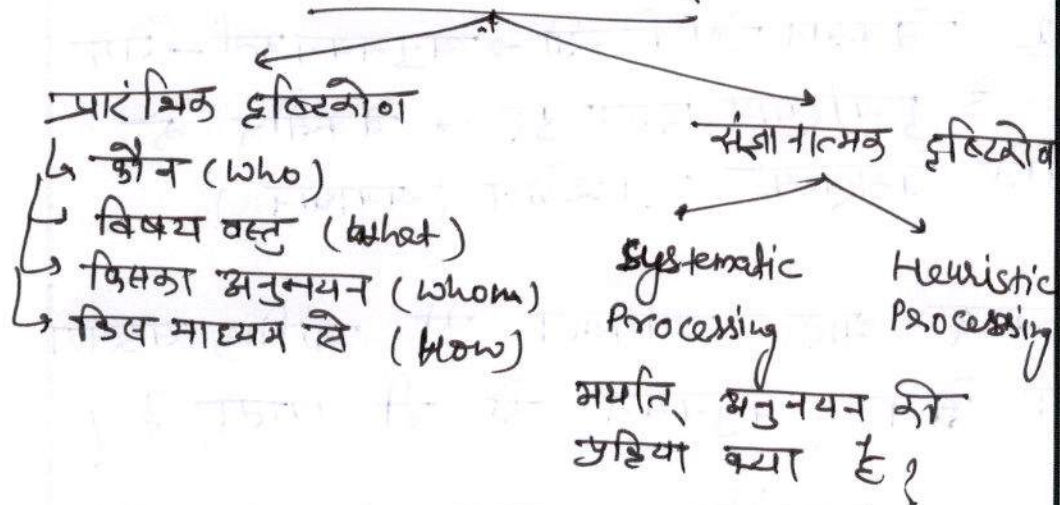 प्रारंभिक दृष्टिकोण
कौन (who)
विषय वस्तु (what)
किसका अनुनयन (whom)
किस माध्यम से (How)
संज्ञानात्मक दृष्टिकोण
Systematic Processing
Heuristic Processing
अर्थात् अनुनयन की
प्रक्रिया क्या है?